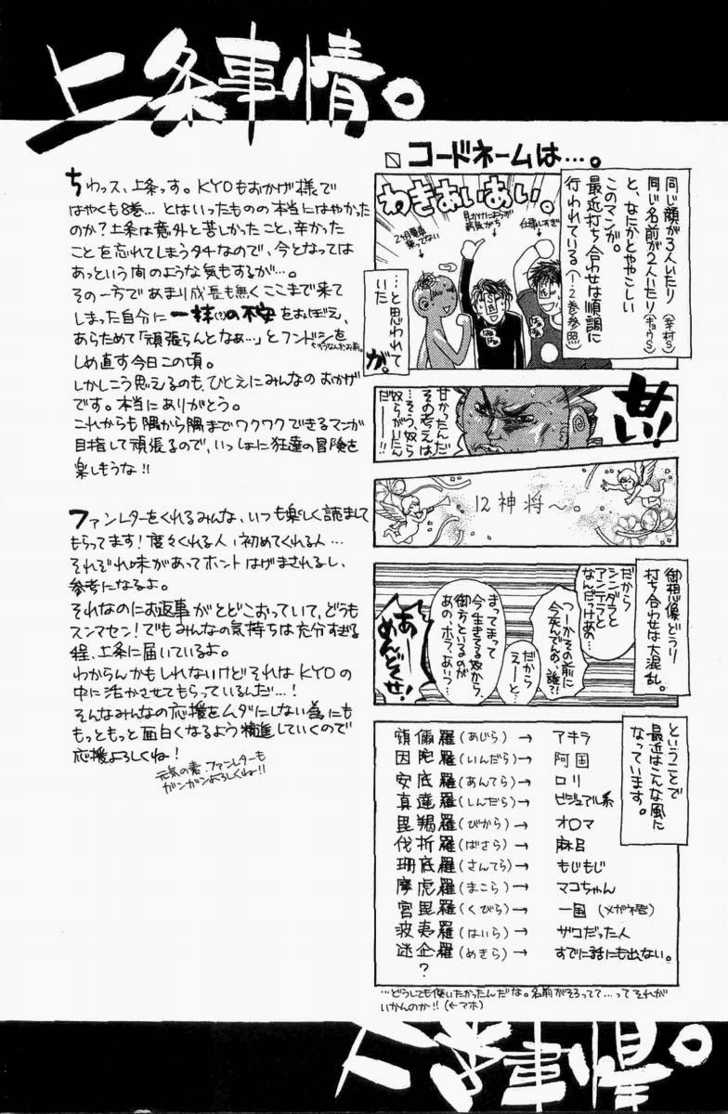 上条事情。
ちわっス、上条っす。KYOもおかげ様で
はやくも8巻…とはいったものの本当にはやかった
のか?上条は意外と苦しかったこと、辛かった
ことを忘れてしまうタチなので、今となっては
あっという間のような気もするが…。
その一方であまり成長も無くここまで来て
しまった自分に一抹(?)の不安をおぼえ、
あらためて「頑張らんとなぁ…」とフンドシを
しめ直す今日この頃。
しかしこう思えるのも、ひとえにみんなのおかげ
です。本当にありがとう。
これからも隅から隅までワクワクできるマンガ
目指して頑張るので、いっしょに狂達の冒険を
楽しもうな!!
ファンレターをくれるみんな、いつも楽しく読まして
もらってます!度々くれる人、初めてくれる人…
それぞれ味があってホントはげまされるし、
参考になるよ。
それなのにお返事がとどこおっていて、どうも
スンマセン!でもみんなの気持ちは充分すぎる
程、上条に届いているよ。
わからんかもしれないけどそれはKYOの
中に活かさせてもらっているんだ…!
そんなみんなの応援をムダにしない為にも
もっともっと面白くなるよう精進していくので
応援よろしくね!
元気の素・ファンレターも
ガンガンよろしくね!!
コードネームは…。
同じ顔が3人いたり(幸村s)
同じ名前が2人いたり(キョウs)
と、なにかとややこしい
このマンガ。
最近打ち合わせは順調に
行われている(↑2巻参照)
わきあいあい。
…と思われて
いた
が。
甘い!
甘かったんだ
その考えは
…そう、奴ら
奴らがいたん
だー
12神将〜。
御想像どうり
打ち合わせは大混乱。
だから
シンダラと
アンテラと
なんだっけお…
つーかその前に
今死んでんの、誰?!
だから
えーと…
まってまって
今生きてる奴から、
御方というのが
あの、ホラ、あいつ…
あー
めんどくせ!
ということで
最近はこんな風に
なっています。
頞儞羅(あじら)→ アキラ
因陀羅(いんだら)→ 阿国
安底羅(あんてら)→ ロリ
真達羅(しんだら)→ ビジュアル系
毘羯羅(びから)→ オロマ
伐折羅(ばさら)→ 麻呂
珊底羅(さんてら)→ もじもじ
摩虎羅(まこら)→ マコちゃん
宮毘羅(くびら)→ 一国
波夷羅(はいら)→ ザコだった人
迷企羅(めきら)→ すでに話にも出ない。
?
…どうしても使いたかったんだな。名前がそろってて…ってそれが
いかんのか!!(←マホ)
上条事情。